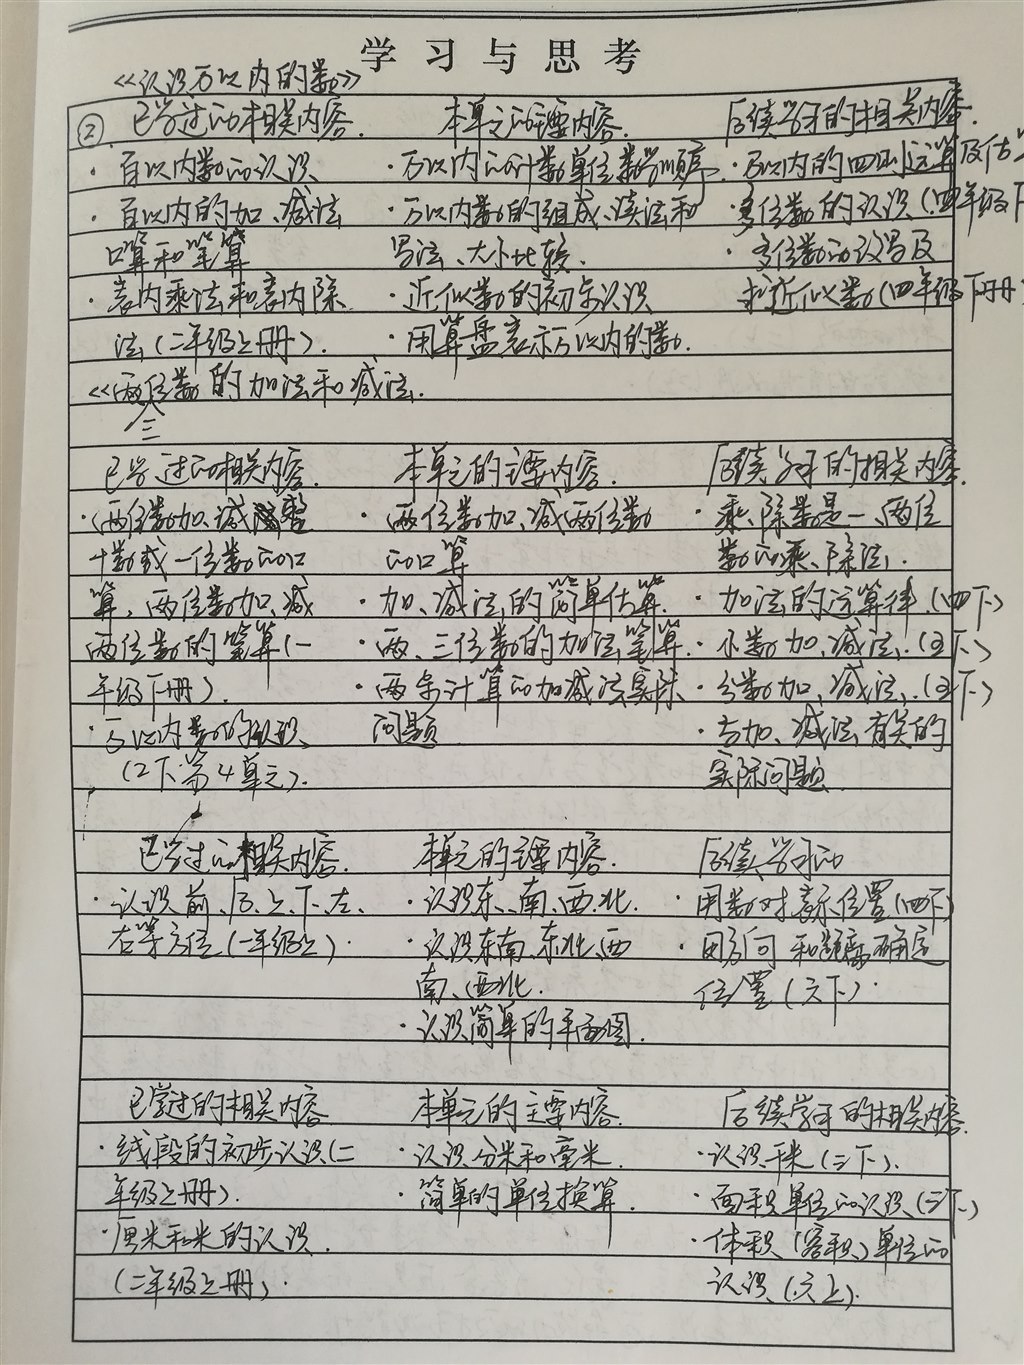 学习与思考
《认识万以内的数》
② 已学过的相关内容. 本单元的主要内容. 后续学习的相关内容.
·百以内数的认识 ·万以内的计数单位数学顺序 ·万以内的四则运算及估
·百以内的加、减法 ·万以内数的组成、读法和 ·多位数的认识(四年级下
口算和笔算 写法、大小比较. ·多位数的改写及
·表内乘法和表内除 ·近似数的初步认识 求近似数(四年级下册)
法(二年级上册). ·用算盘表示万以内的数.
《两位数的加法和减法.
三
已学过的相关内容. 本单元的主要内容. 后续学习的相关内容.
·(两位数加、减整 ·两位数加、减两位数 ·乘、除数是一、两位
十数或一位数的口 的口算 数的乘、除法.
算,两位数加、减 ·加、减法的简单估算. ·加法的运算律.(四下)
两位数的笔算(一 ·两、三位数的加法笔算. ·小数加、减法.
年级下册). ·两步计算的加减法实际 ·分数加、减法.
·万以内数的认识、 问题 ·与加、减法有关的
(2下第4单元). 实际问题.
已学过的相关内容. 本单元的主要内容. 后续学习的
·认识前、后、上、下、左、 ·认识东、南、西、北. ·用数对表示位置(四下)
右等方位(一年级上). ·认识东南、东北、西 ·用方向和距离确定
南、西北. 位置(六下).
·认识简单的平面图.
已学过的相关内容 本单元的主要内容. 后续学习的相关内容.
·线段的初步认识(二 ·认识分米和毫米. ·认识千米(三下).
年级上册). ·简单的单位换算. ·面积单位的认识.(三下)
·厘米和米的认识. ·体积(容积)单位的
(二年级上册). 认识(六上).